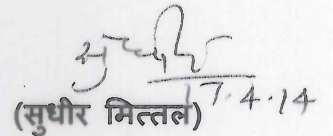 सुधीर
17.4.14
(सुधीर मित्तल)